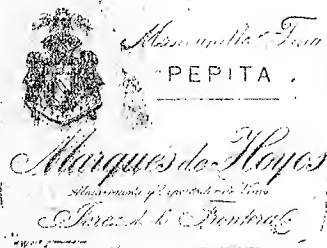 Manzanilla Fina
PEPITA
Marqués de Hoyos
Almacenista y Exportador de Vinos
Jerez de la Frontera